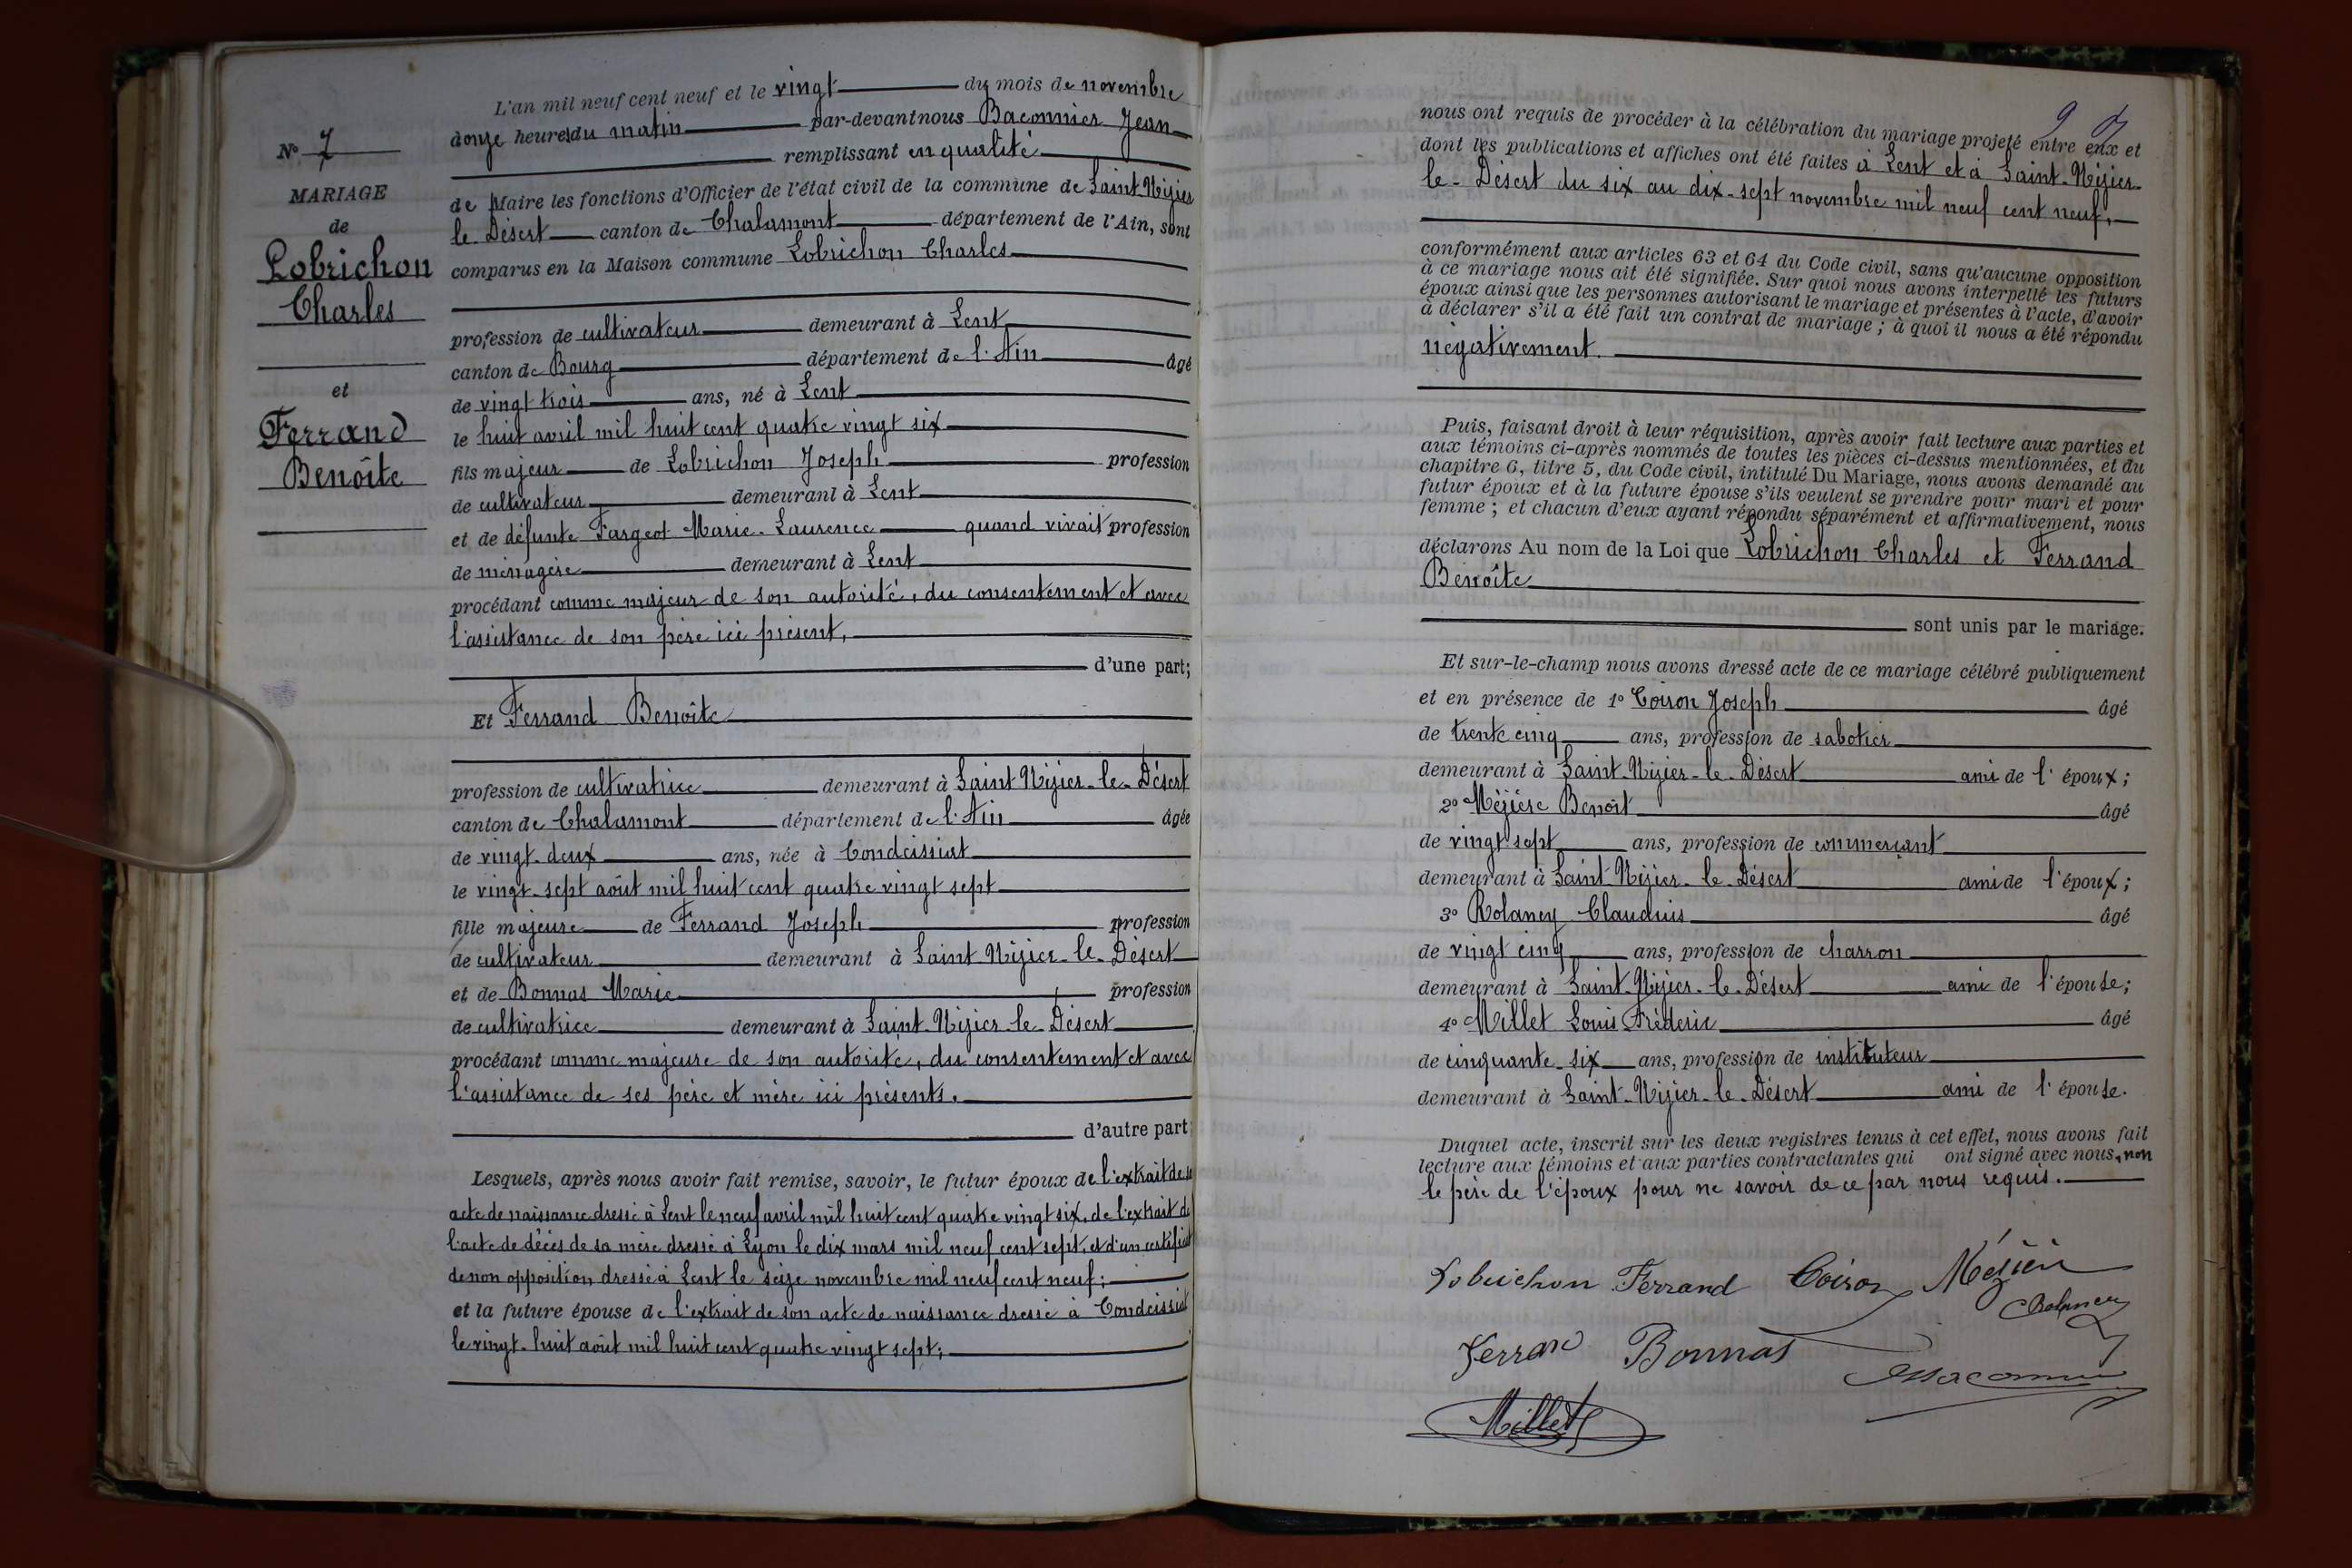 N° 7
MARIAGE
de
Lobrichon
Charles
et
Ferrand
Benoîte
L'an mil neuf cent neuf et le vingt du mois de novembre
à onze heures du matin par-devant nous Baconnier Jean
remplissant en qualité
de Maire les fonctions d'Officier de l'état civil de la commune de Saint Nizier
le Désert canton de Chalamont département de l'Ain, sont
comparus en la Maison commune Lobrichon Charles
profession de cultivateur demeurant à Lent
canton de Bourg département de l'Ain âgé
de vingt trois ans, né à Lent
le huit avril mil huit cent quatre vingt six
fils majeur de Lobrichon Joseph profession
de cultivateur demeurant à Lent
et de défunte Fargeot Marie-Laurence quand vivait profession
de ménagère demeurant à Lent
procédant comme majeur de son autorité, du consentement et avec
l'assistance de son père ici présent,
d'une part;
Et Ferrand Benoîte
profession de cultivatrice demeurant à Saint Nizier-le-Désert
canton de Chalamont département de l'Ain âgée
de vingt-deux ans, née à Condeissiat
le vingt-sept août mil huit cent quatre vingt sept
fille majeure de Ferrand Joseph profession
de cultivateur demeurant à Saint-Nizier-le-Désert
et de Bonnas Marie profession
de cultivatrice demeurant à Saint-Nizier-le-Désert
procédant comme majeure de son autorité, du consentement et avec
l'assistance de ses père et mère ici présents.
d'autre part;
Lesquels, après nous avoir fait remise, savoir, le futur époux de l'extrait de son
acte de naissance dressé à Lent le neuf avril mil huit cent quatre vingt six, de l'extrait de
l'acte de décès de sa mère dressé à Lyon le dix mars mil neuf cent sept, et d'un certificat
de non opposition dressé à Lent le seize novembre mil neuf cent neuf;
et la future épouse de l'extrait de son acte de naissance dressé à Condeissiat
le vingt-huit août mil huit cent quatre vingt sept;
nous ont requis de procéder à la célébration du mariage projeté entre eux et
dont les publications et affiches ont été faites à Lent et à Saint-Nizier-
le-Désert du six au dix-sept novembre mil neuf cent neuf,
conformément aux articles 63 et 64 du Code civil, sans qu'aucune opposition
à ce mariage nous ait été signifiée. Sur quoi nous avons interpellé les futurs
époux ainsi que les personnes autorisant le mariage et présentes à l'acte, d'avoir
à déclarer s'il a été fait un contrat de mariage; à quoi il nous a été répondu
négativement.
Puis, faisant droit à leur réquisition, après avoir fait lecture aux parties et
aux témoins ci-après nommés de toutes les pièces ci-dessus mentionnées, et du
chapitre 6, titre 5, du Code civil, intitulé Du Mariage, nous avons demandé au
futur époux et à la future épouse s'ils veulent se prendre pour mari et pour
femme; et chacun d'eux ayant répondu séparément et affirmativement, nous
déclarons Au nom de la Loi que Lobrichon Charles et Ferrand
Benoîte
sont unis par le mariage.
Et sur-le-champ nous avons dressé acte de ce mariage célébré publiquement
et en présence de 1° Coiron Joseph âgé
de trente cinq ans, profession de sabotier
demeurant à Saint-Nizier-le-Désert ami de l'époux;
2° Mézière Benoît âgé
de vingt sept ans, profession de commerçant
demeurant à Saint-Nizier-le-Désert ami de l'époux;
3° Rolaney Claudius âgé
de vingt cinq ans, profession de charron
demeurant à Saint-Nizier-le-Désert ami de l'épouse;
4° Millet Louis Fréderic âgé
de cinquante-six ans, profession de instituteur
demeurant à Saint-Nizier-le-Désert ami de l'épouse.
Duquel acte, inscrit sur les deux registres tenus à cet effet, nous avons fait
lecture aux témoins et aux parties contractantes qui ont signé avec nous, non
le père de l'époux pour ne savoir de ce par nous requis.
Lobrichon Ferrand Coiron Mézière
Rolaney
Ferrand Bonnas Baconnier
Millet